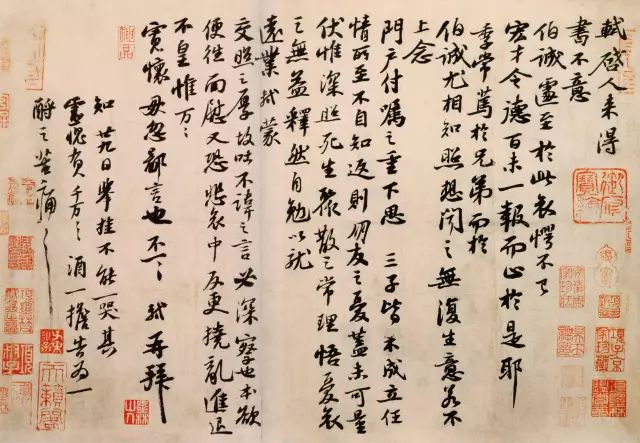 軾啓人來得
書不意
伯誠遽至於此哀愕不已
宏才令德百未一報而止於是耶
季常篤於兄弟而於
伯誠尤相知照想聞之無復生意若不
上念
門戶付囑之重下思三子皆不成立任
情所至不自知返則朋友之憂蓋未可量
伏惟深照死生聚散之常理悟憂哀
之無益釋然自勉以就
遠業軾蒙
交照之厚故吐不諱之言必深察也本欲
便往面慰又恐悲哀中反更撓亂進退
不皇惟萬萬
寬懷毋忽鄙言也不一一軾再拜
知廿九日舉挂不能一哭其
靈愧負千万千万酒一擔告為一
酹之苦痛苦痛